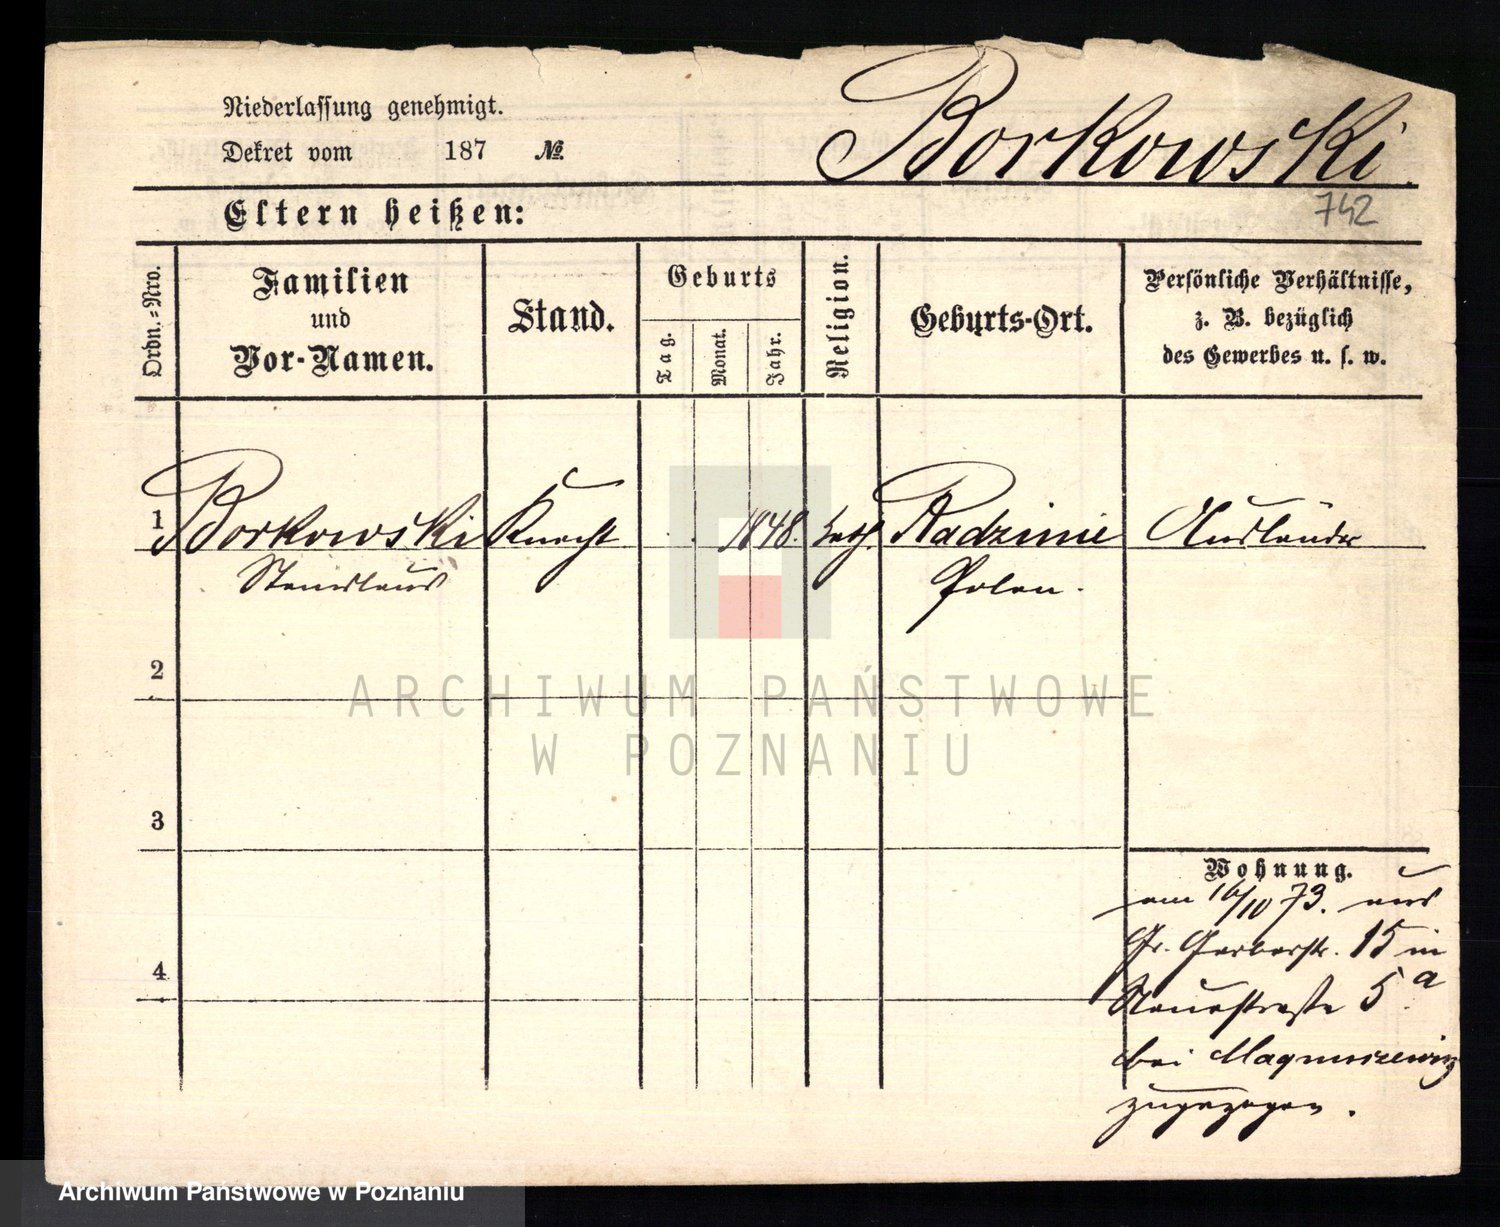 Niederlassung genehmigt.
Dekret vom 187 №
Borkowski
742
Eltern heißen:
Ordn.-Nro.
Familien
und
Vor-Namen.
Stand.
Geburts
Tag.
Monat.
Jahr.
Religion.
Geburts-Ort.
Persönliche Verhältnisse,
z. B. bezüglich
des Gewerbes u. s. w.
1 Borkowski Knecht 1848. kath. Radzinie Ausländer
Stanislaus Polen.
2
3
4
Wohnung.
am 16/10 73. aus
Gr. Gerberstr. 15 in
Neuestraße 5 a
bei Magnuszewicz
zugezogen.
ARCHIWUM PAŃSTWOWE
W POZNANIU
Archiwum Państwowe w Poznaniu